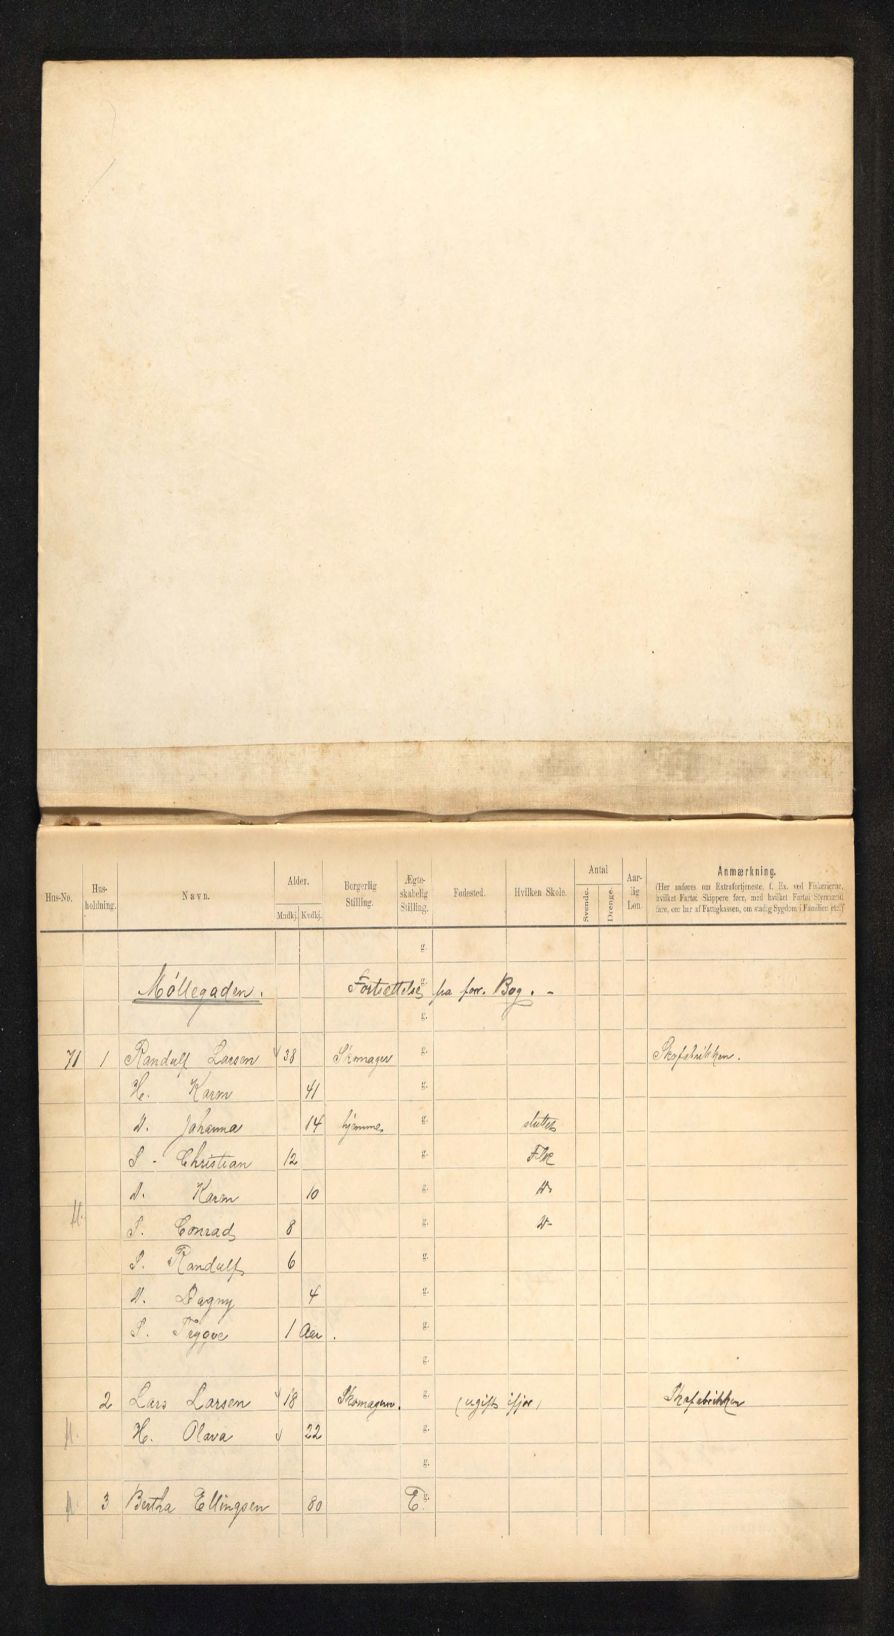 Hus-No. Hus-holdning. Navn. Alder. Mndkj. Kvdkj. Borgerlig Stilling. Ægte-skabelig Stilling. Fødested. Hvilken Skole. Antal Svende. Drenge. Aar-lig Løn. Anmærkning.
(Her anføres om Extrafortjeneste, f. Ex. ved Fiskerierne,
hvilket Fartøi Skippere fører, med hvilket Fartøi Sjømænd
fare, om har af Fattigkassen, om stadig Sygdom i Familien etc.)
g.
Møllegaden. Fortsættelse g. fra forr. Bog. -
g.
71 1 Randulf Larsen 38 Skomager g. Skofabrikken.
H. Karen 41 g.
D. Johanna 14 hjemme g. sluttet
S - Christian 12 g. FSk
D. Karen 10 g. D-
M. S. Conrad 8 g. D-
S. Randulf 6 g.
D. Dagny 4 g.
S. Trygve 1 Aar. g.
g.
2 Lars Larsen 18 Skomager. g. (ugift ifjor) Skofabrikken
M. H. Olava 22 g.
g.
M. 3 Bertha Ellingsen 80 E. g.